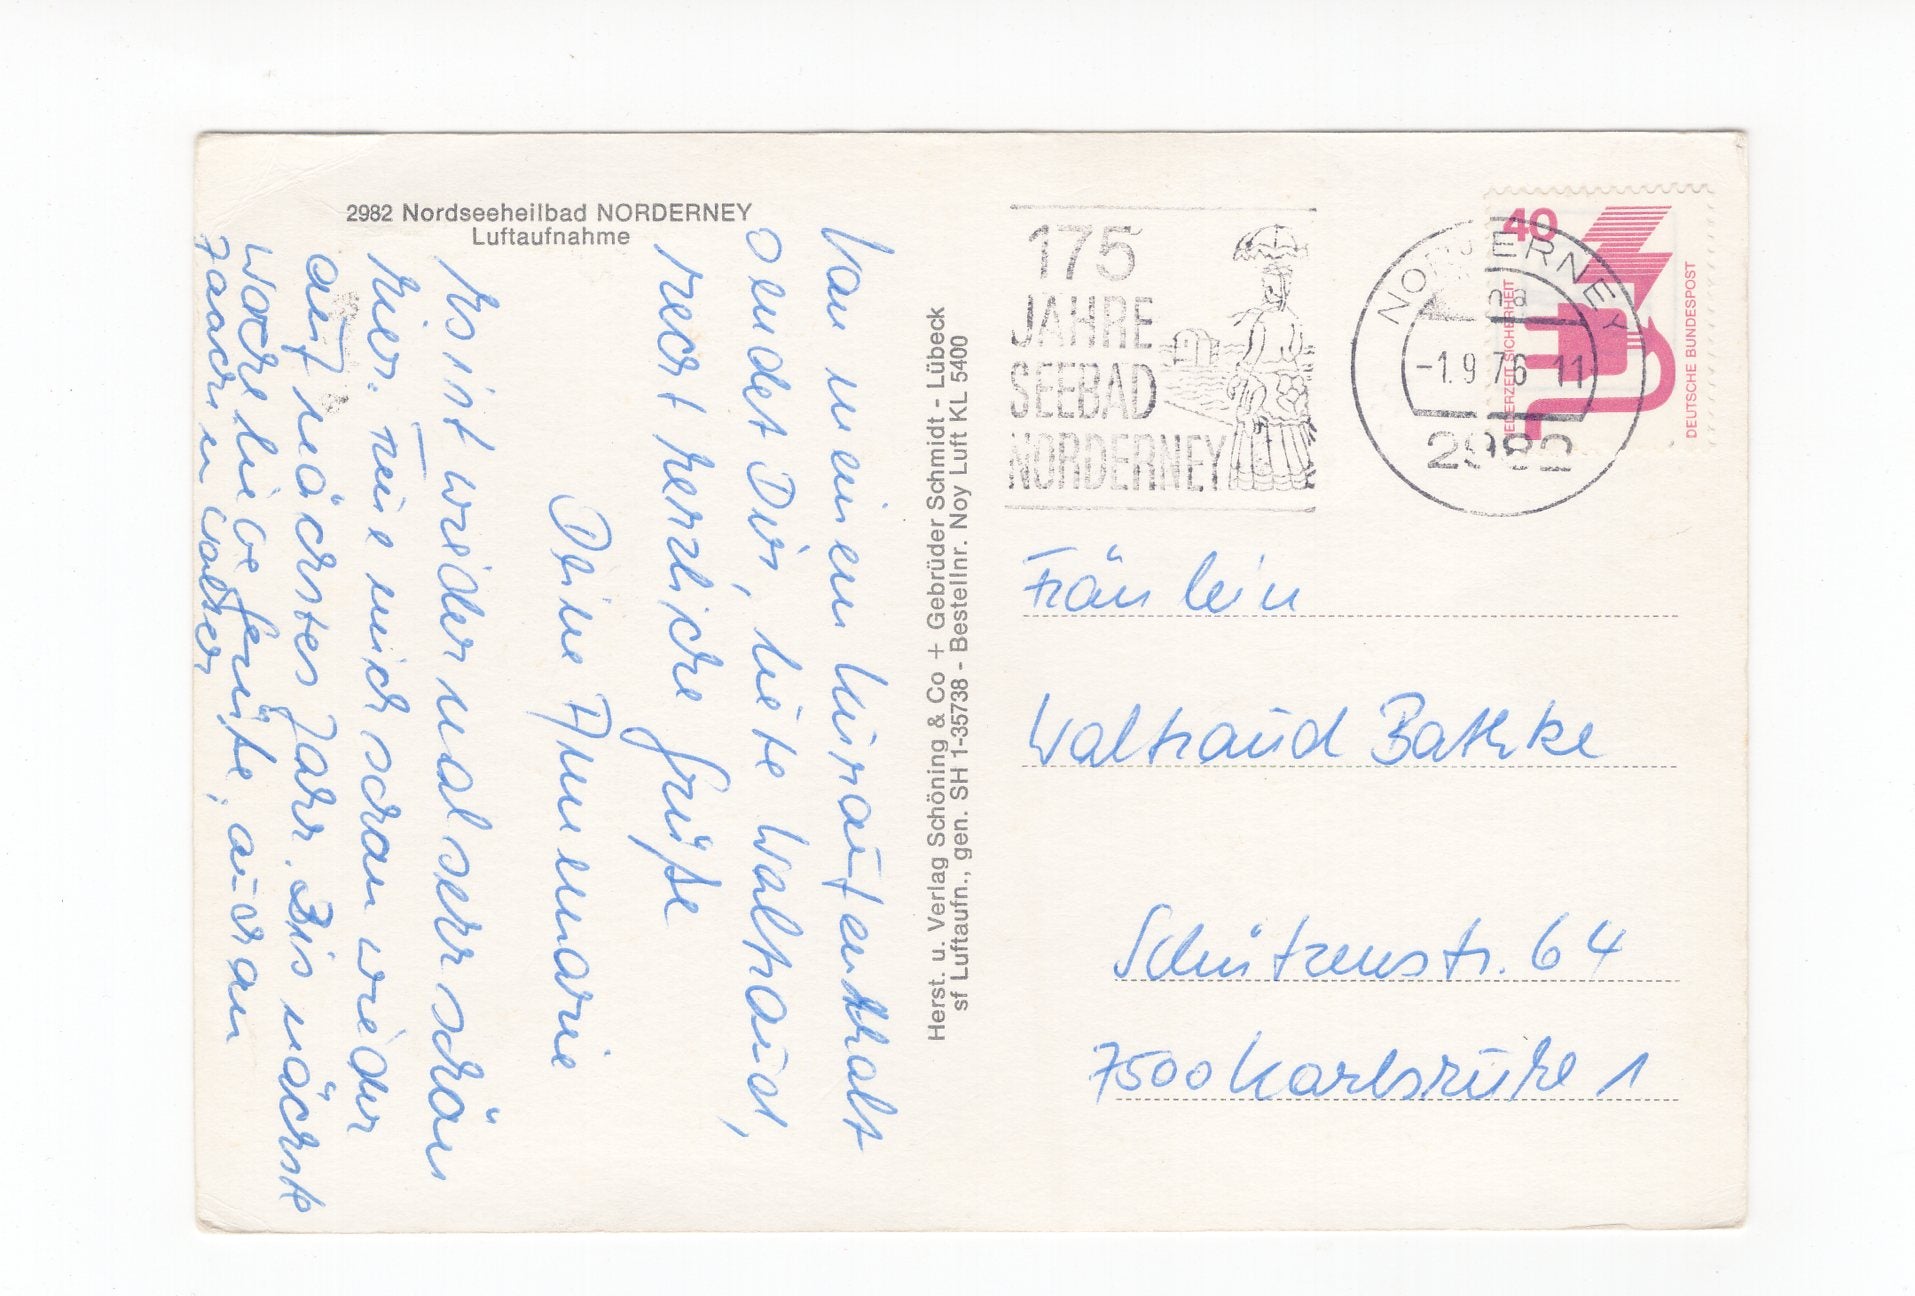 2982 Nordseeheilbad NORDERNEY
Luftaufnahme
Von meinem Kuraufenthalt
sendet Dir, liebe Waltraud,
recht herzliche Grüße
Deine Annemarie
Es ist wieder mal sehr schön
hier. Freue mich schon wieder
auf nächstes Jahr. Bis nächste
Woche liebe Grüße, auch an
Herst. u. Verlag Schöning & Co + Gebrüder Schmidt - Lübeck
sf Luftaufn., gen. SH 1-35738 - Bestellnr. Noy Luft KL 5400
175
JAHRE
SEEBAD
NORDERNEY
NORDERNEY
-1.9.76 11
2982
40
JEDERZEIT SICHERHEIT
DEUTSCHE BUNDESPOST
Fräulein
Waltraud Bathke
Schützenstr. 64
7500 Karlsruhe 1